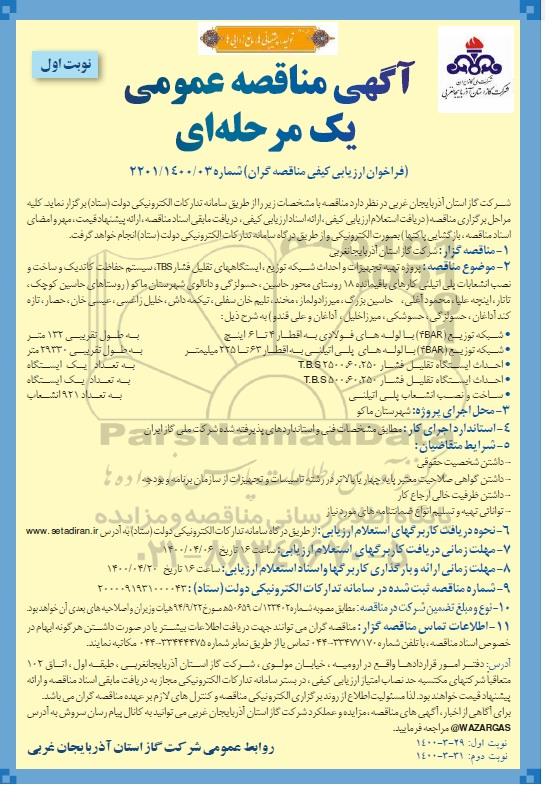 تولید، پشتیبانی ها، مانع زدایی ها
نوبت اول
شرکت ملی گاز ایران
شرکت گاز استان آذربایجان غربی
آگهی مناقصه عمومی
یک مرحله‌ای
(فراخوان ارزیابی کیفی مناقصه گران) شماره ۲۲۰۱/۱۴۰۰/۰۳
شرکت گاز استان آذربایجان غربی در نظر دارد مناقصه با مشخصات زیر را از طریق سامانه تدارکات الکترونیکی دولت (ستاد) برگزار نماید. کلیه
مراحل برگزاری مناقصه (دریافت استعلام ارزیابی کیفی، ارائه اسناد ارزیابی کیفی، دریافت مابقی اسناد مناقصه، ارائه پیشنهاد قیمت، مهر و امضای
اسناد مناقصه، بازگشایی پاکتها) بصورت الکترونیکی و از طریق درگاه سامانه تدارکات الکترونیکی دولت (ستاد) انجام خواهد گرفت.
۱- مناقصه گزار: شرکت گاز استان آذربایجانغربی
۲- موضوع مناقصه: پروژه تهیه تجهیزات و احداث شبکه توزیع، ایستگاههای تقلیل فشار TBS، سیستم حفاظت کاتدیک و ساخت و
نصب انشعابات پلی اتیلنی گازهای باقیمانده ۱۸ روستای محور حاسین، حسولرگی و دانالوی شهرستان ماکو (روستاهای حاسین کوچک،
تاتار، اینچه علیا، محمود آغلی، حاسین بزرگ، میرزا دولماز، مخند، تلیم خان سفلی، تیکمه داش، خلیل زاغسی، عیسی خان، حصار، تازه
کند آداغان، حسولرگی، حسوشکی، میرزا خلیل، آداغان و علی قندو) به شرح ذیل:
• شبکه توزیع (۴BAR) با لوله های فولادی به اقطار ۴ تا ۶ اینچ به طول تقریبی ۱۳۲ متر
• شبکه توزیع (۴BAR) با لوله های پلی اتیلنی به اقطار ۶۳ تا ۲۲۵ میلیمتر به طول تقریبی ۲۹۳۳۰ متر
• احداث ایستگاه تقلیل فشار T.B.S ۲۵۰۰.۶۰.۲۵۰ به تعداد یک ایستگاه
• احداث ایستگاه تقلیل فشار T.B.S ۵۰۰.۶۰.۲۵۰ به تعداد یک ایستگاه
• ساخت و نصب انشعاب پلی اتیلنی به تعداد ۹۲۱ انشعاب
۳- محل اجرای پروژه: شهرستان ماکو
۴- استاندارد اجرای کار: مطابق مشخصات فنی و استانداردهای پذیرفته شده شرکت ملی گاز ایران
۵- شرایط متقاضیان:
- داشتن شخصیت حقوقی
- داشتن گواهی صلاحیت معتبر پایه چهار یا بالاتر در رشته تاسیسات و تجهیزات از سازمان برنامه و بودجه
- داشتن ظرفیت خالی ارجاع کار
- توانائی تهیه و تسلیم انواع ضمانتنامه های مورد نیاز
۶- نحوه دریافت کاربرگهای استعلام ارزیابی: از طریق درگاه سامانه تدارکات الکترونیکی دولت (ستاد) به آدرس www.setadiran.ir
۷- مهلت زمانی دریافت کاربرگهای استعلام ارزیابی: ساعت ۱۶ تاریخ ۱۴۰۰/۰۴/۰۶
۸- مهلت زمانی ارائه و بارگذاری کاربرگها و اسناد استعلام ارزیابی: ساعت ۱۶ تاریخ ۱۴۰۰/۰۴/۲۰
۹- شماره مناقصه ثبت شده در سامانه تدارکات الکترونیکی دولت (ستاد): ۲۰۰۰۰۹۱۹۳۱۰۰۰۰۴۳
۱۰- نوع و مبلغ تضمین شرکت در مناقصه: مطابق مصوبه شماره ۱۲۳۴۰۲/ت۵۰۶۵۹هـ مورخ ۹۴/۹/۲۲ هیات وزیران و اصلاحیه های بعدی آن خواهد بود.
۱۱- اطلاعات تماس مناقصه گزار: مناقصه گران می توانند جهت دریافت اطلاعات بیشتر یا در صورت داشتن هرگونه ابهام در
خصوص اسناد مناقصه، با تلفن شماره ۳۳۴۷۷۱۷۰-۰۴۴ تماس یا از طریق نمابر شماره ۳۳۴۴۴۴۷۵-۰۴۴ مکاتبه نمایند.
آدرس: دفتر امور قراردادها واقع در ارومیه، خیابان مولوی، شرکت گاز استان آذربایجانغربی، طبقه اول، اتاق ۱۰۲
متعاقبا شرکتهای مکتسبه حد نصاب امتیاز ارزیابی کیفی، در بستر سامانه تدارکات الکترونیکی مجاز به دریافت مابقی اسناد مناقصه و ارائه
پیشنهاد قیمت خواهند بود. لذا مسئولیت اطلاع از روند برگزاری الکترونیکی مناقصه و کنترل های لازم بر عهده مناقصه گران می باشد.
برای آگاهی از اخبار، آگهی های مناقصه، مزایده و عملکرد شرکت گاز استان آذربایجان غربی می توانید به کانال پیام رسان سروش به آدرس
@WAZARGAS مراجعه فرمایید.
نوبت اول: ۲۹-۳-۱۴۰۰
نوبت دوم: ۳۱-۳-۱۴۰۰
روابط عمومی شرکت گاز استان آذربایجان غربی